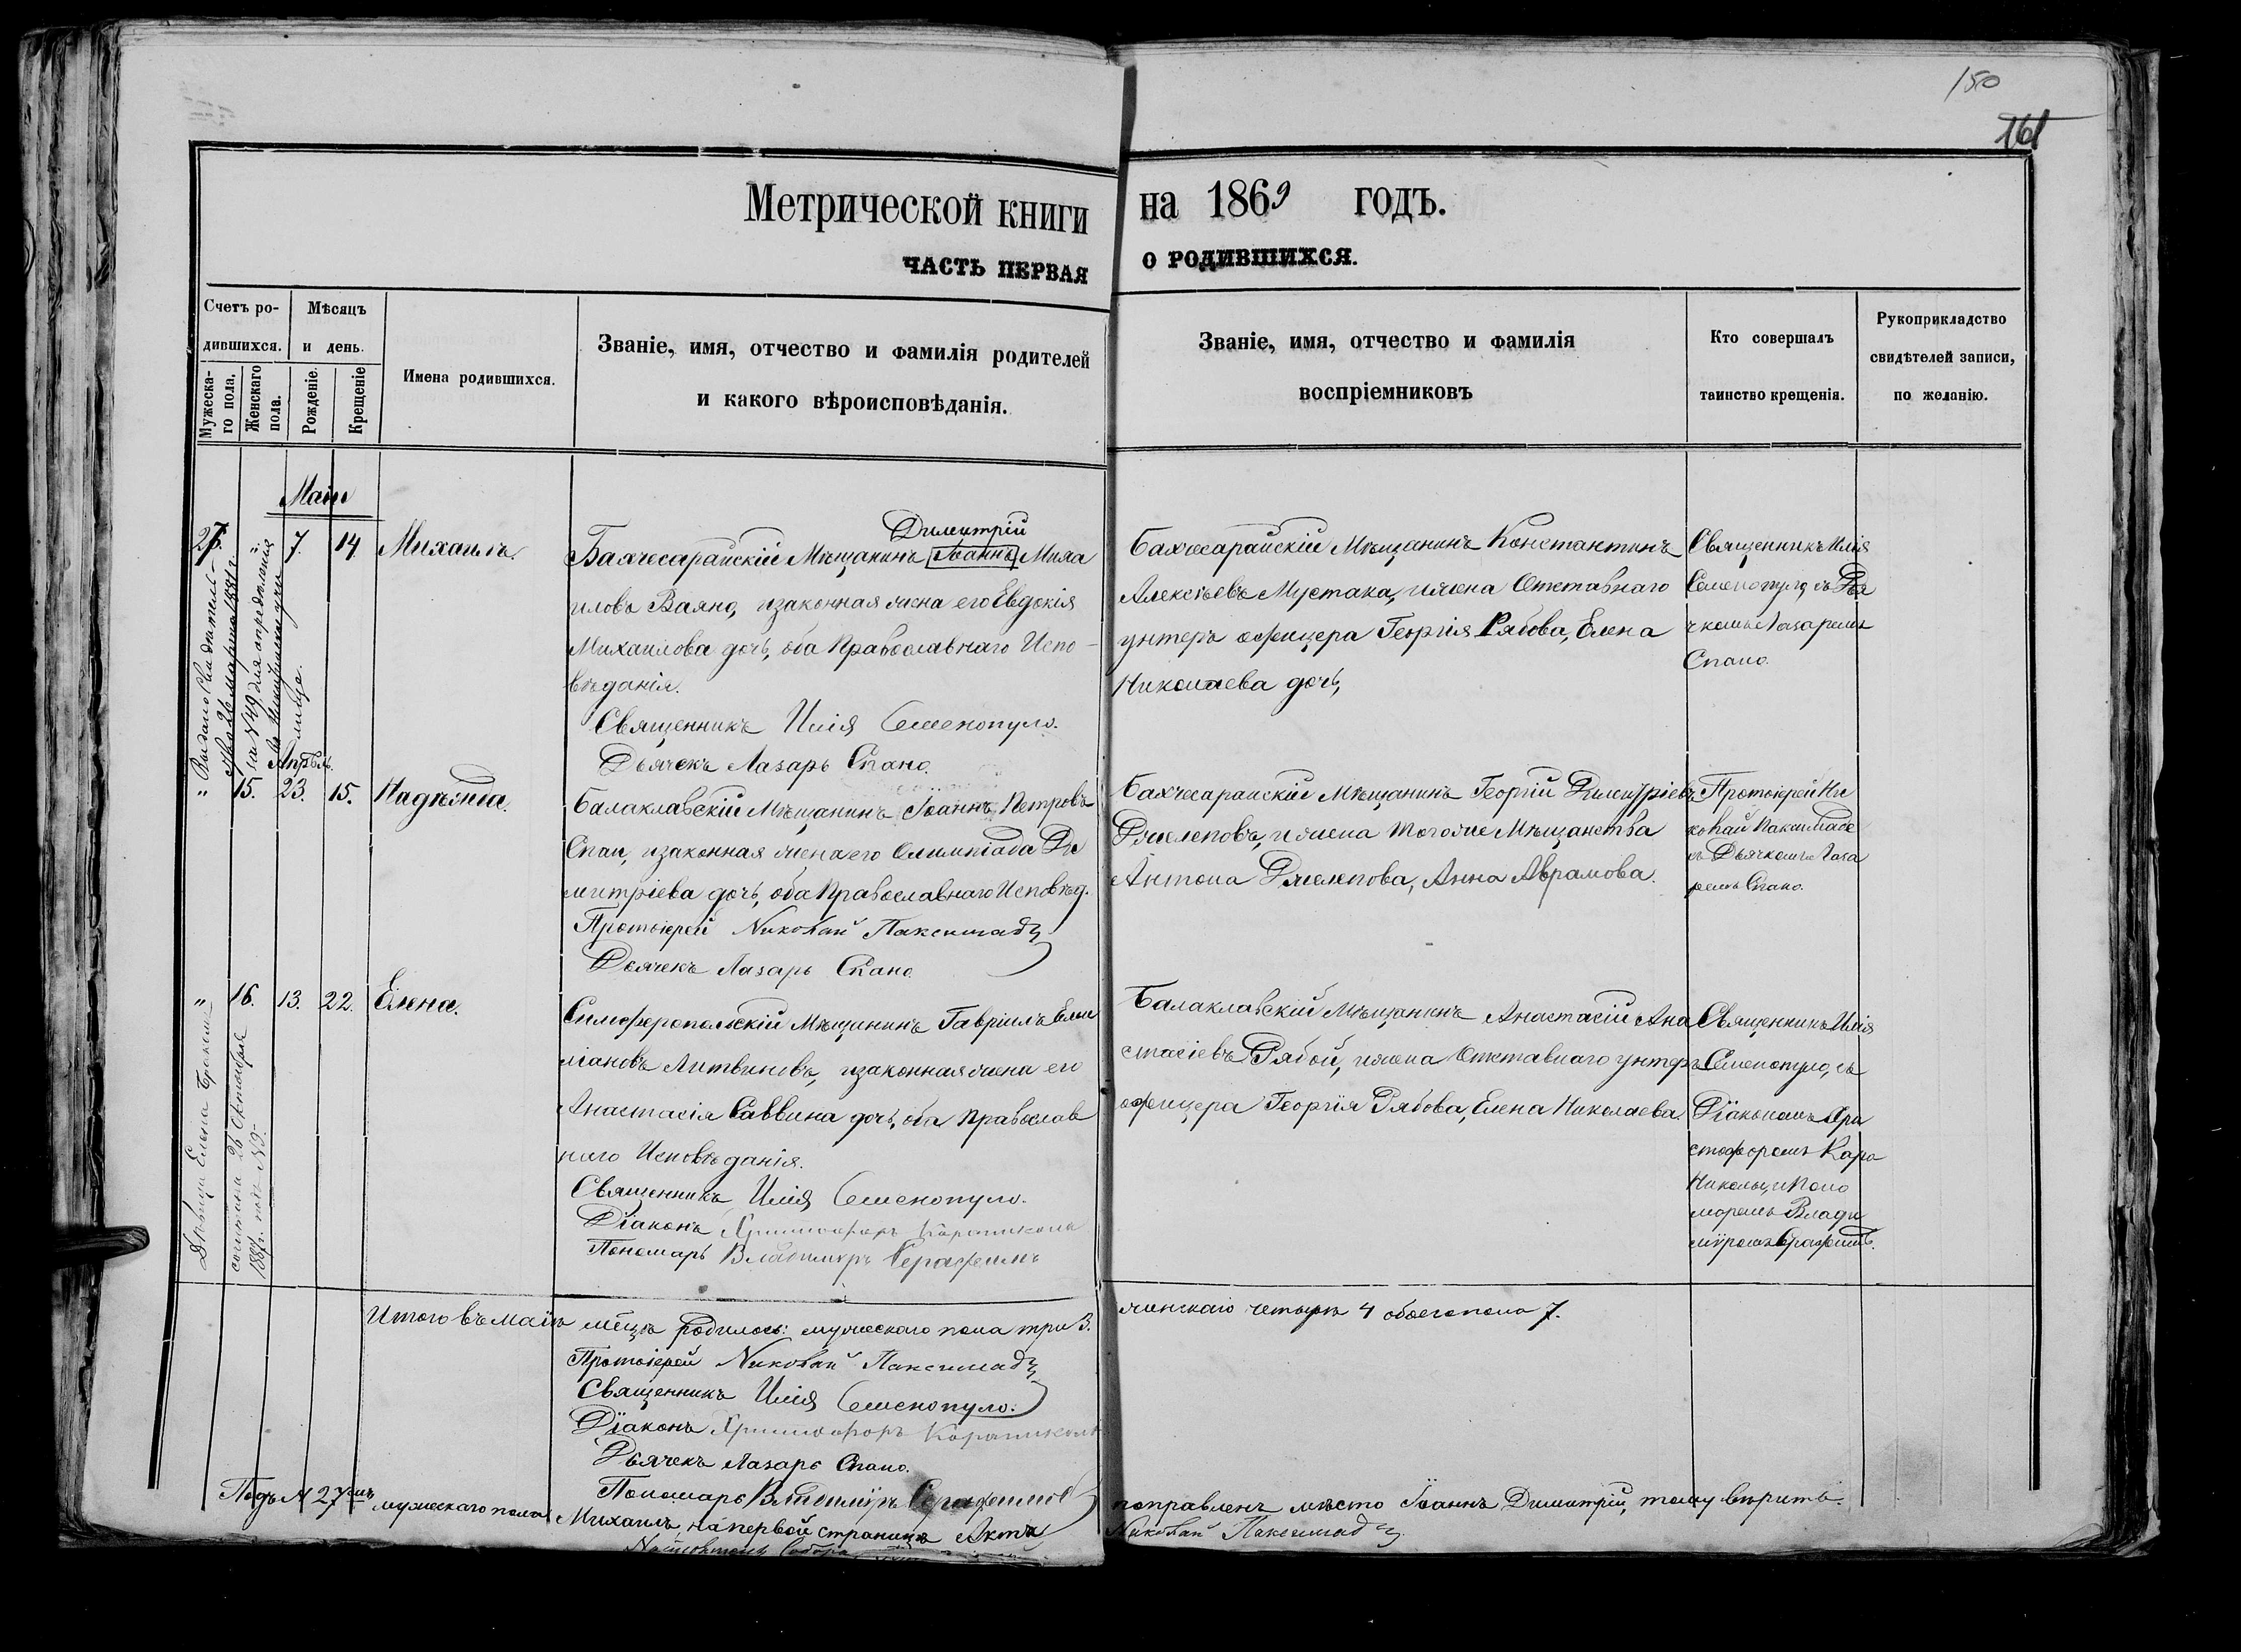 150
161
Метрической книги на 1869 годъ.
ЧАСТЬ ПЕРВАЯ О РОДИВШИХСЯ.
Счетъ родившихся.
Мужескаго пола.
Женскаго пола.
Мѣсяцъ и день.
Рожденіе.
Крещеніе
Имена родившихся.
Званіе, имя, отчество и фамилія родителей
и какого вѣроисповѣданія.
Званіе, имя, отчество и фамилія
воспріемниковъ
Кто совершалъ
таинство крещенія.
Рукоприкладство
свидѣтелей записи,
по желанію.
Маiи
27. 7. 14 Михаилъ.
Димитрій
Бахчесарайскій Мѣщанинъ Іоаннъ Миха
иловъ Ваяно, изаконная жена его Евдокія
Михаилова дочь, оба Православнаго Испо-
вѣданія.
Священникъ Илія Семенопуло.
Дьячекъ Лазарь Спано.
Бахчесарайскій Мѣщанинъ Константинъ
Алексѣевъ Мустака, ижена Отставнаго
унтеръ офицера Георгія Рябова, Елена
Николаева дочь,
Священникъ Илія
Семенопуло, съ Дья
чкомъ Лазаремъ
Спано.
Выдано Свидѣтель-
ство 26 марта 1881 г.
за № 49 для опредѣленія
Апрѣль.
" 15. 23. 15. Надѣжда.
Балаклавскій Мѣщанинъ Іоаннъ Петровъ
Спаи, изаконная жена его Олимпіада Ди
митріева дочь, оба Православнаго Исповѣд.
Протоіерей Николай Паксимадз
Дьячекъ Лазарь Спано
Бахчесарайскій Мѣщанинъ Георгій Димитріевъ
Джелеповъ, ижена тогоже Мѣщанства
Антона Джелепова, Анна Аврамова.
Протоіерей Ни
колай Паксимаде
съ Дьячкомъ Лаза
ремъ Спано.
" 16. 13. 22. Елена.
Симферопольскій Мѣщанинъ Гавріилъ Еми
ліановъ Литвиновъ, изаконная жена его
Анастасія Саввина дочь, оба Православ
наго Исповѣданія.
Священникъ Илія Семенопуло.
Діаконъ Христофоръ Караниколи
Пономарь Владимиръ Серафимъ
Балаклавскій Мѣщанинъ Анастасій Ана
стасіевъ Рябой, ижена Отставнаго унтеръ
офицера Георгія Рябова, Елена Николаева.
Священникъ Илія
Семенопуло, съ
Діакономъ Хри
стофоромъ Кара
Николы, иПоно
моремъ Влади
міромъ Серафимъ.
Дѣвица Елена бракомъ
сочетана 26 Октября
1887 г. подъ №9.
Итого въ маiѣ мѣсцѣ родилось: мужескаго пола три 3. женскаго четыре 4 обоегопола 7.
Протоіерей Николай Паксимадз
Священникъ Илія Семенопуло.
Діаконъ Христофоръ Караниколи
Дьячекъ Лазарь Спано.
Пономарь Владимиръ Серафимов
Подъ № 27емъ мужескаго пола Михаилъ, на первой страницѣ Акта поправленъ мѣсто Іоаннъ Димитрій, тому вѣрить.
Николай Паксимадз